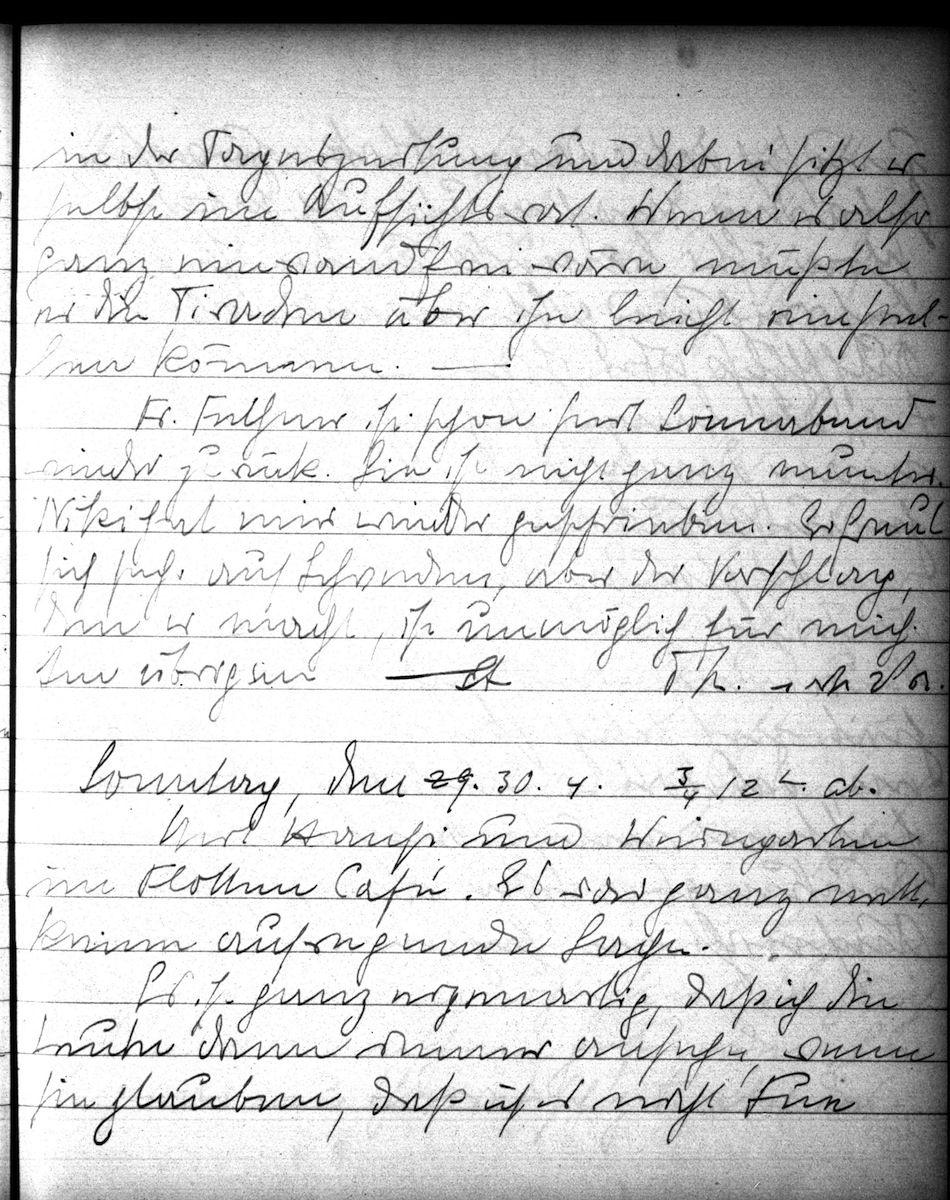 in der Tageszeitung und dabei sitzt er
selbst im Aufsichtsrat. Wenn er also
ganz einwandfrei wäre, müßte
er die Tiraden über ihn leicht einstel-
len können. —
Fr. Fellner ist schon seit Sonnabend
wieder zurück. Sie ist nicht ganz munter.
Niki hat mir wieder geschrieben. Er freut
sich sehr auf Schweden, aber der Vorschlag,
den er macht, ist unmöglich für mich.
Im übrigen —
Sonntag, den 29. 30. 4. 3/4 12 h. ab.
Mit Hansi und Weingartin
im Flotten Café. Es war ganz nett,
keine aufregende Sache.
Es ist ganz eigenartig, daß ich die
Leute dann immer ansehe, wenn
sie glauben, daß ich es nicht tue